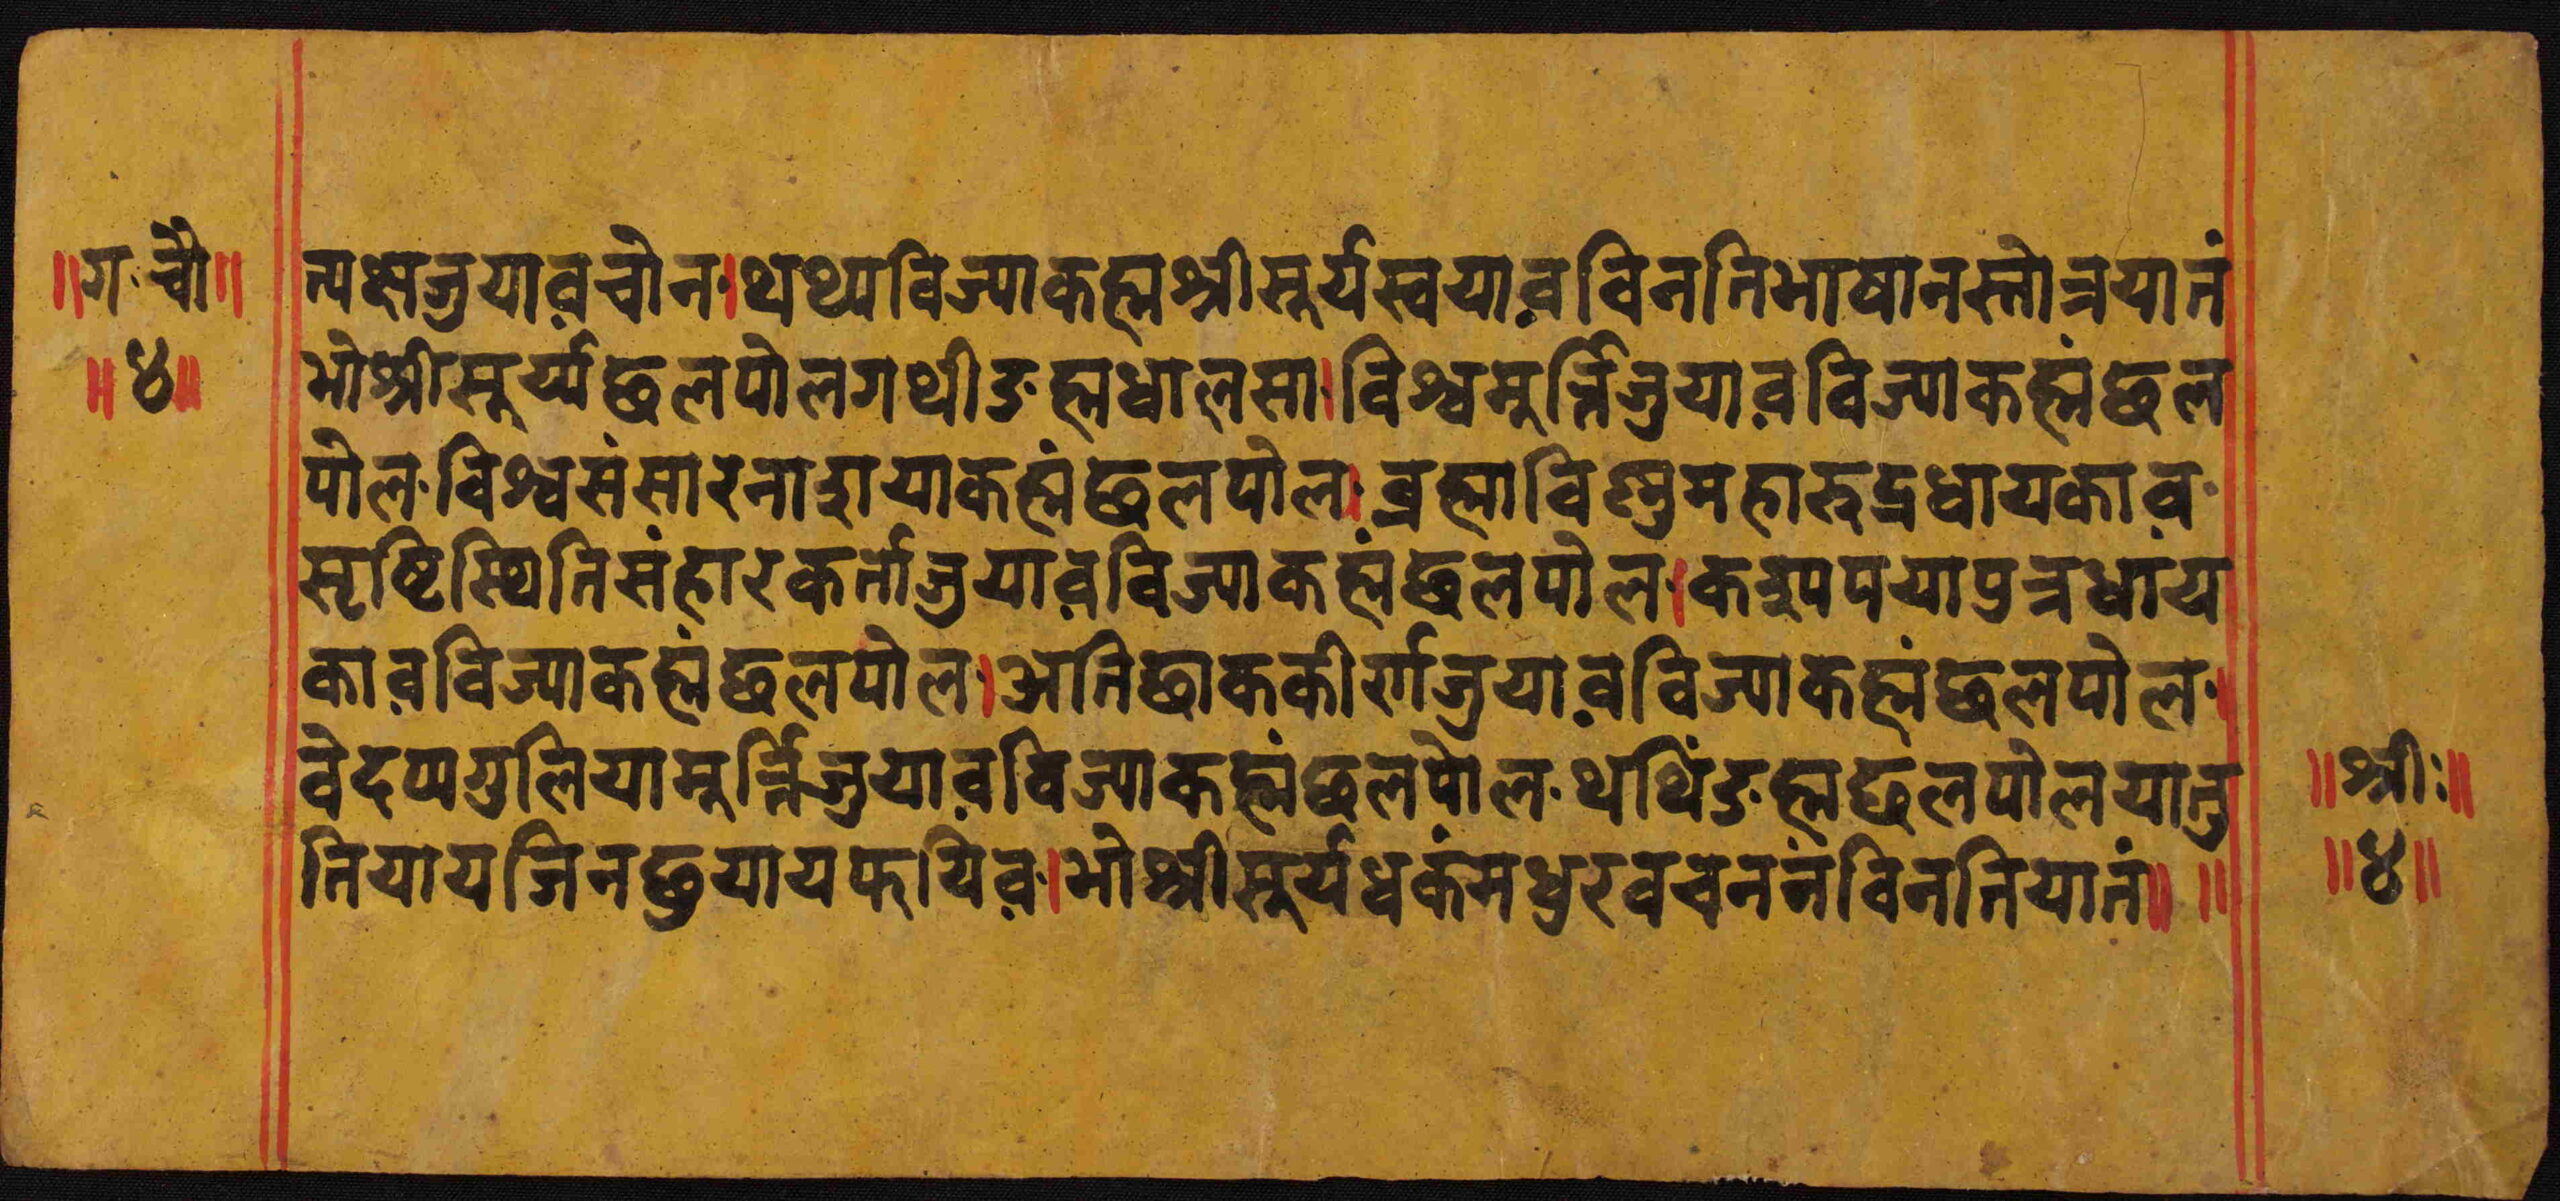 ॥ग· चौ॥
॥४॥
त्यक्षजुयाव़चोन·।थथ्यविज्याकह्मश्रीसूर्यस्वयाव़विनतिभाषानस्तोत्रयातं
भोश्रीसूर्य्यछलपोलगथीङह्मधाल्सा·।विश्वमूर्त्तिजुयाव़विज्याकह्मंछल
पोल·विश्वसंसारनाशयाकह्मंछलपोल·।ब्रह्माविष्णुमहारुद्रधायकाव़·
सृष्टिस्थितिसंहारकर्ताजुयाव़विज्याकह्मंछलपोल·।कश्यपयापुत्रधाय
काव़विज्याकह्मंछलपोल·।अतिछाककीर्णजुयाव़विज्याकह्मंछलपोल·।
वेदप्यगुलियामूर्त्तिजुयाव़विज्याकह्मंछलपोल·थथिंङह्मछलपोलयातु
तियायजिनछुयायफयिव़·।भोश्रीसूर्यधकंमधुरवचननंविनतियातं॥ ॥
॥श्रीः॥
॥४॥